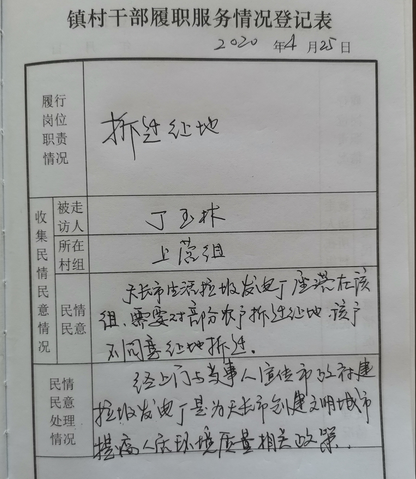 镇村干部履职服务情况登记表
2020 年 4 月 25 日
履行
岗位
职责
情况
拆迁征地
收集民情民意情况
被走
访人
丁玉林
所在
村组
上营组
民情
民意
天长市生活垃圾发电厂座落在该
组,需要对部分农户拆迁征地,该户
不同意征地拆迁。
民情
民意
处理
情况
经上门与当事人宣传市政府建
垃圾发电厂是为天长市创建文明城市
提高人民环境质量相关政策.